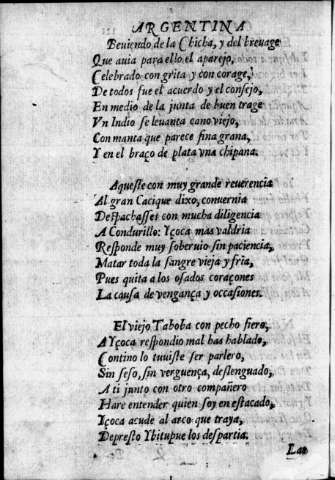 ARGENTINA
Beuiendo de la Chicha, y del breuage
Que auia para ello el aparejo,
Celebrado con grita y con corage,
De todos fue el acuerdo y el consejo,
En medio de la junta de buen trage
Vn Indio se leuanta cano viejo,
Con manta que parece fina grana,
Y en el braço de plata vna chipana.
Aqueste con muy grande reuerencia
Al gran Cacique dixo, conuernia
Despachasses con mucha diligencia
A Condurillo: Yçoca mas valdria
Responde muy soberuio sin paciencia,
Matar toda la sangre vieja y fria,
Pues quita a los osados coraçones
La causa de vengança y occasiones.
El viejo Taboba con pecho fiero,
A Yçoca respondio mal has hablado,
Contino lo tuuiste ser parlero,
Sin seso, sin verguença, deslenguado,
A ti junto con otro compañero
Hare entender quien soy en estacado,
Yçoca acude al arco que traya,
De presto Ybitupue los despartia.
Las